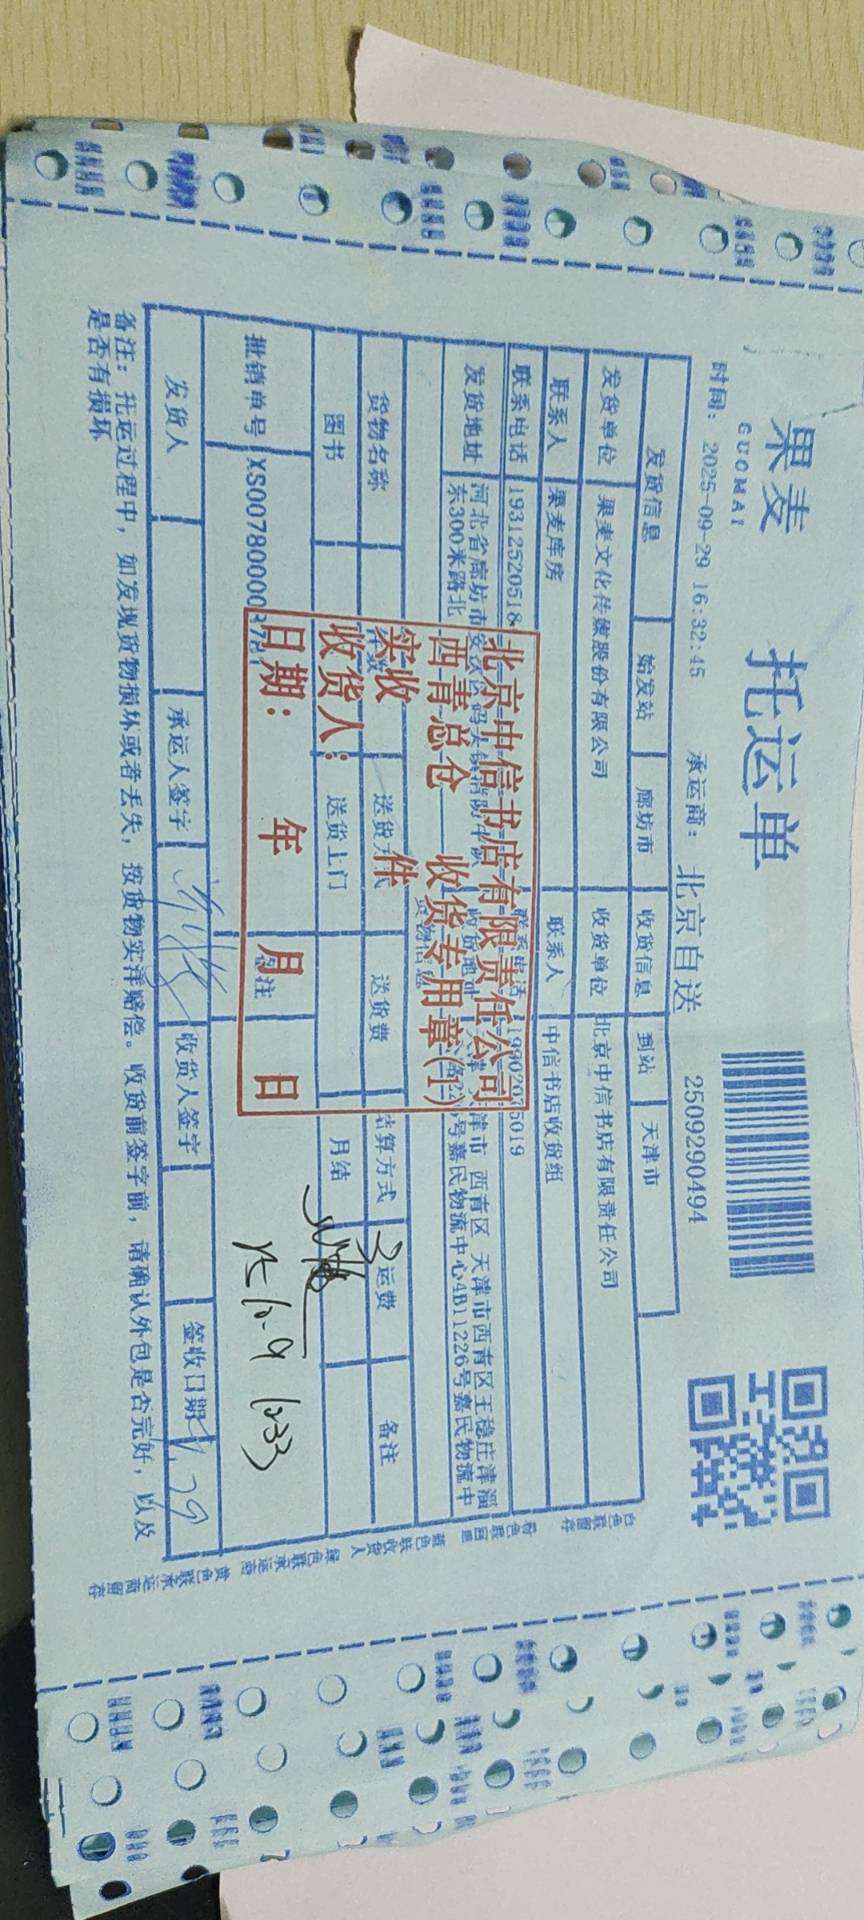 果麦
GUOMAI
托运单
2509290494
时间: 2025-09-29 16:32:45 承运商: 北京自送
发货信息 始发站 廊坊市 收货信息 到站 天津市
发货单位 果麦文化传媒股份有限公司 收货单位 北京中信书店有限责任公司
联系人 果麦库房 联系人 中信书店收货组
联系电话 19312520518 联系电话
发货地址 河北省廊坊市
东300米路北
津市 西青区 天津市西青区王稳庄津淄
号嘉民物流中心4B11226号嘉民物流中
货物名称 送货方式 送货费 结算方式 运费 备注
图书 送货上门 月结 3
批销单号 备注
北京中信书店有限责任公司
西青总仓 收货专用章(1)
实收 件
收货人:
日期: 年 月 日
25-10-9 1033
发货人 承运人签字 收货人签字 签收日期 9.29
备注: 托运过程中, 如发现货物损坏或者丢失, 按货物实洋赔偿。收货前签字前, 请确认外包是否完好, 以及
是否有损坏
白色联留存 粉色联回单 蓝色联收货人 绿色联承运商 黄色联承运商留存